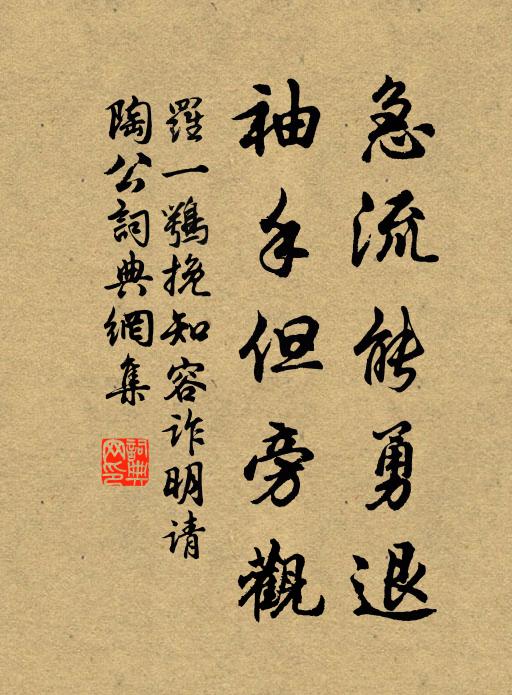 急流能勇退
袖手但旁觀
羅一鶚挽知容詐明请
陶公詞典網集
詞典網印